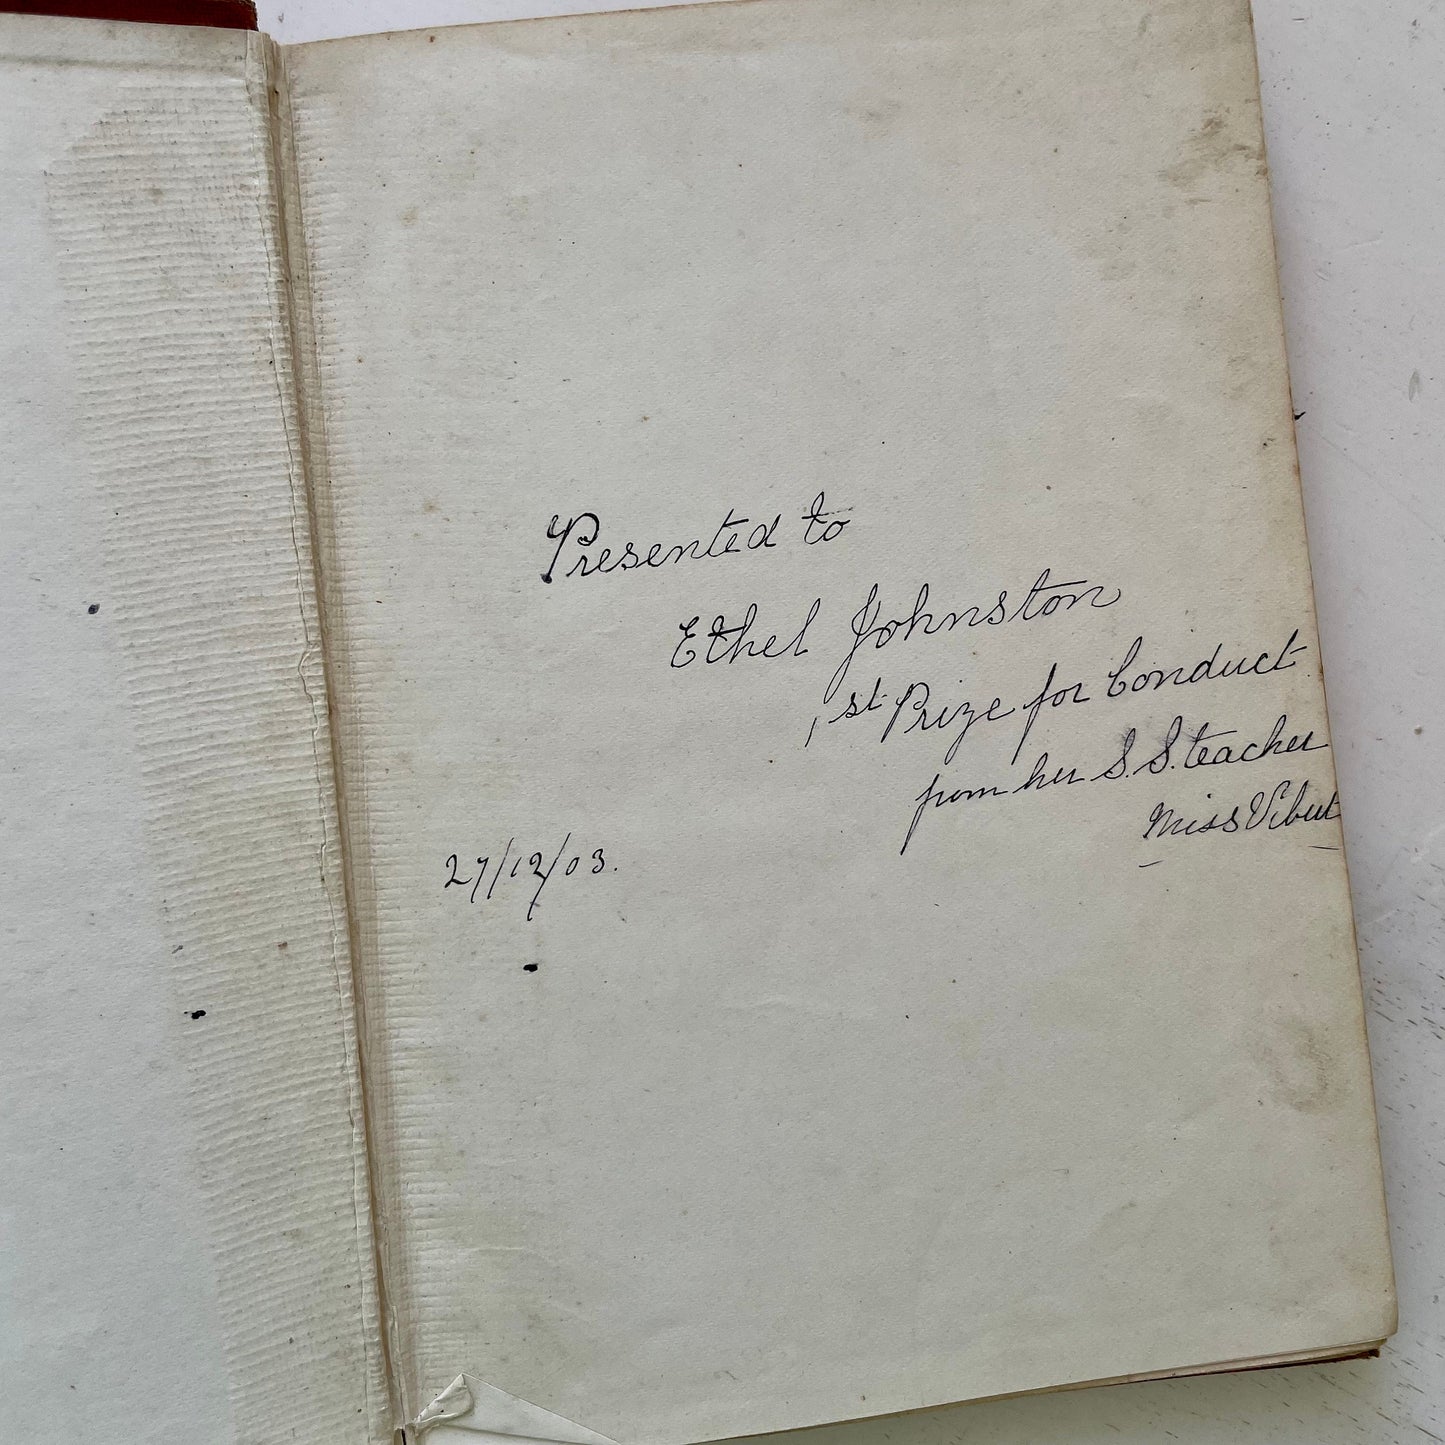 Presented to
Ethel Johnston
1st Prize for Conduct
from her S.S. teacher
Miss Vibert
27/12/03.